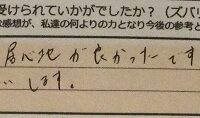 受けられていかがでしたか？（ズバリ
な感想が、私達の何よりの力となり今後の参考と
居心地が良かったです
います。